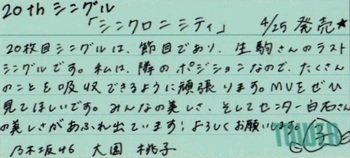 20thシングル
「シンクロニシティ」 4/25発売★
20枚目シングルは、節目であり、生駒さんのラスト
シングルです。私は、隣のポジションなので、たくさん
のことを吸収できるように頑張ります。MVをぜひ
見てほしいです。みんなの美しさ、そしてセンター白石さん
の美しさがあふれ出ています！よろしくお願いします。
乃木坂46 大園 桃子